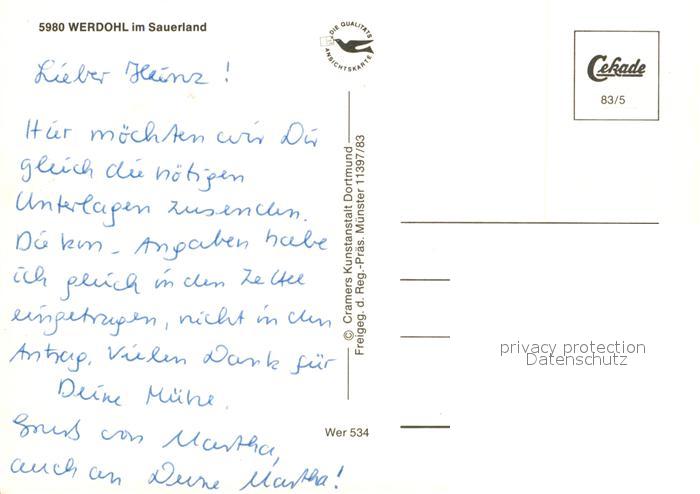 5980 WERDOHL im Sauerland
DIE QUALITÄTS
ANSICHTSKARTE
Cekade
83/5
Lieber Heinz !
Hier möchten wir Dir
gleich die nötigen
Unterlagen zusenden.
Die km - Angaben habe
ich gleich in den Zettel
eingetragen, nicht in den
Antrag. Vielen Dank für
Deine Mühe.
Gruß von Martha,
auch an Deine Martha!
© Cramers Kunstanstalt Dortmund
Freigeg. d. Reg.-Präs. Münster 11397/83
Wer 534
privacy protection
Datenschutz